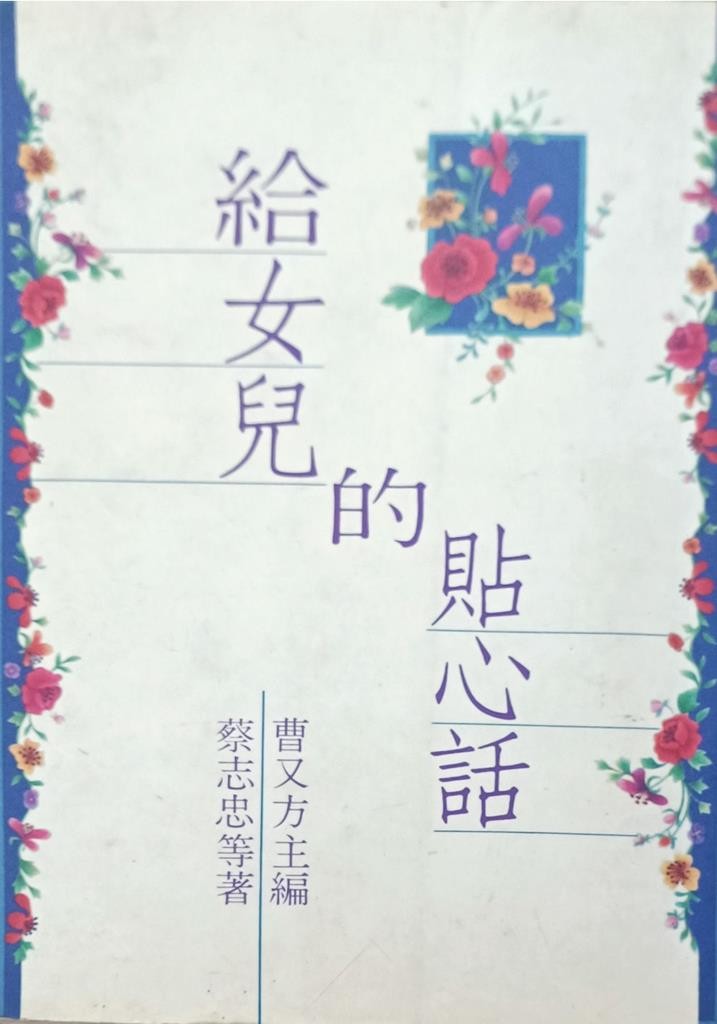 給女兒的貼心話
曹又方主編
蔡志忠等著